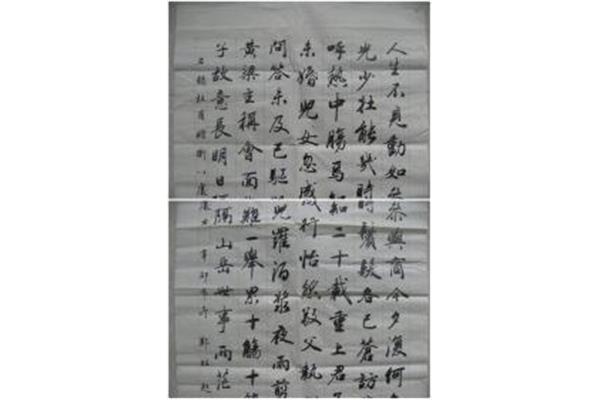 人生不見動如參與商今夕復何
光少壯能幾時鬢髮各已蒼訪
呼熱中腸焉知二十載重上君
未婚兒女忽成行怡然敬父執
問答未及已驅兒羅酒漿夜雨剪
黃粱主稱會面難一舉累十觴十
子故意長明日隔山岳世事兩茫
右錄杜甫贈衛八處士